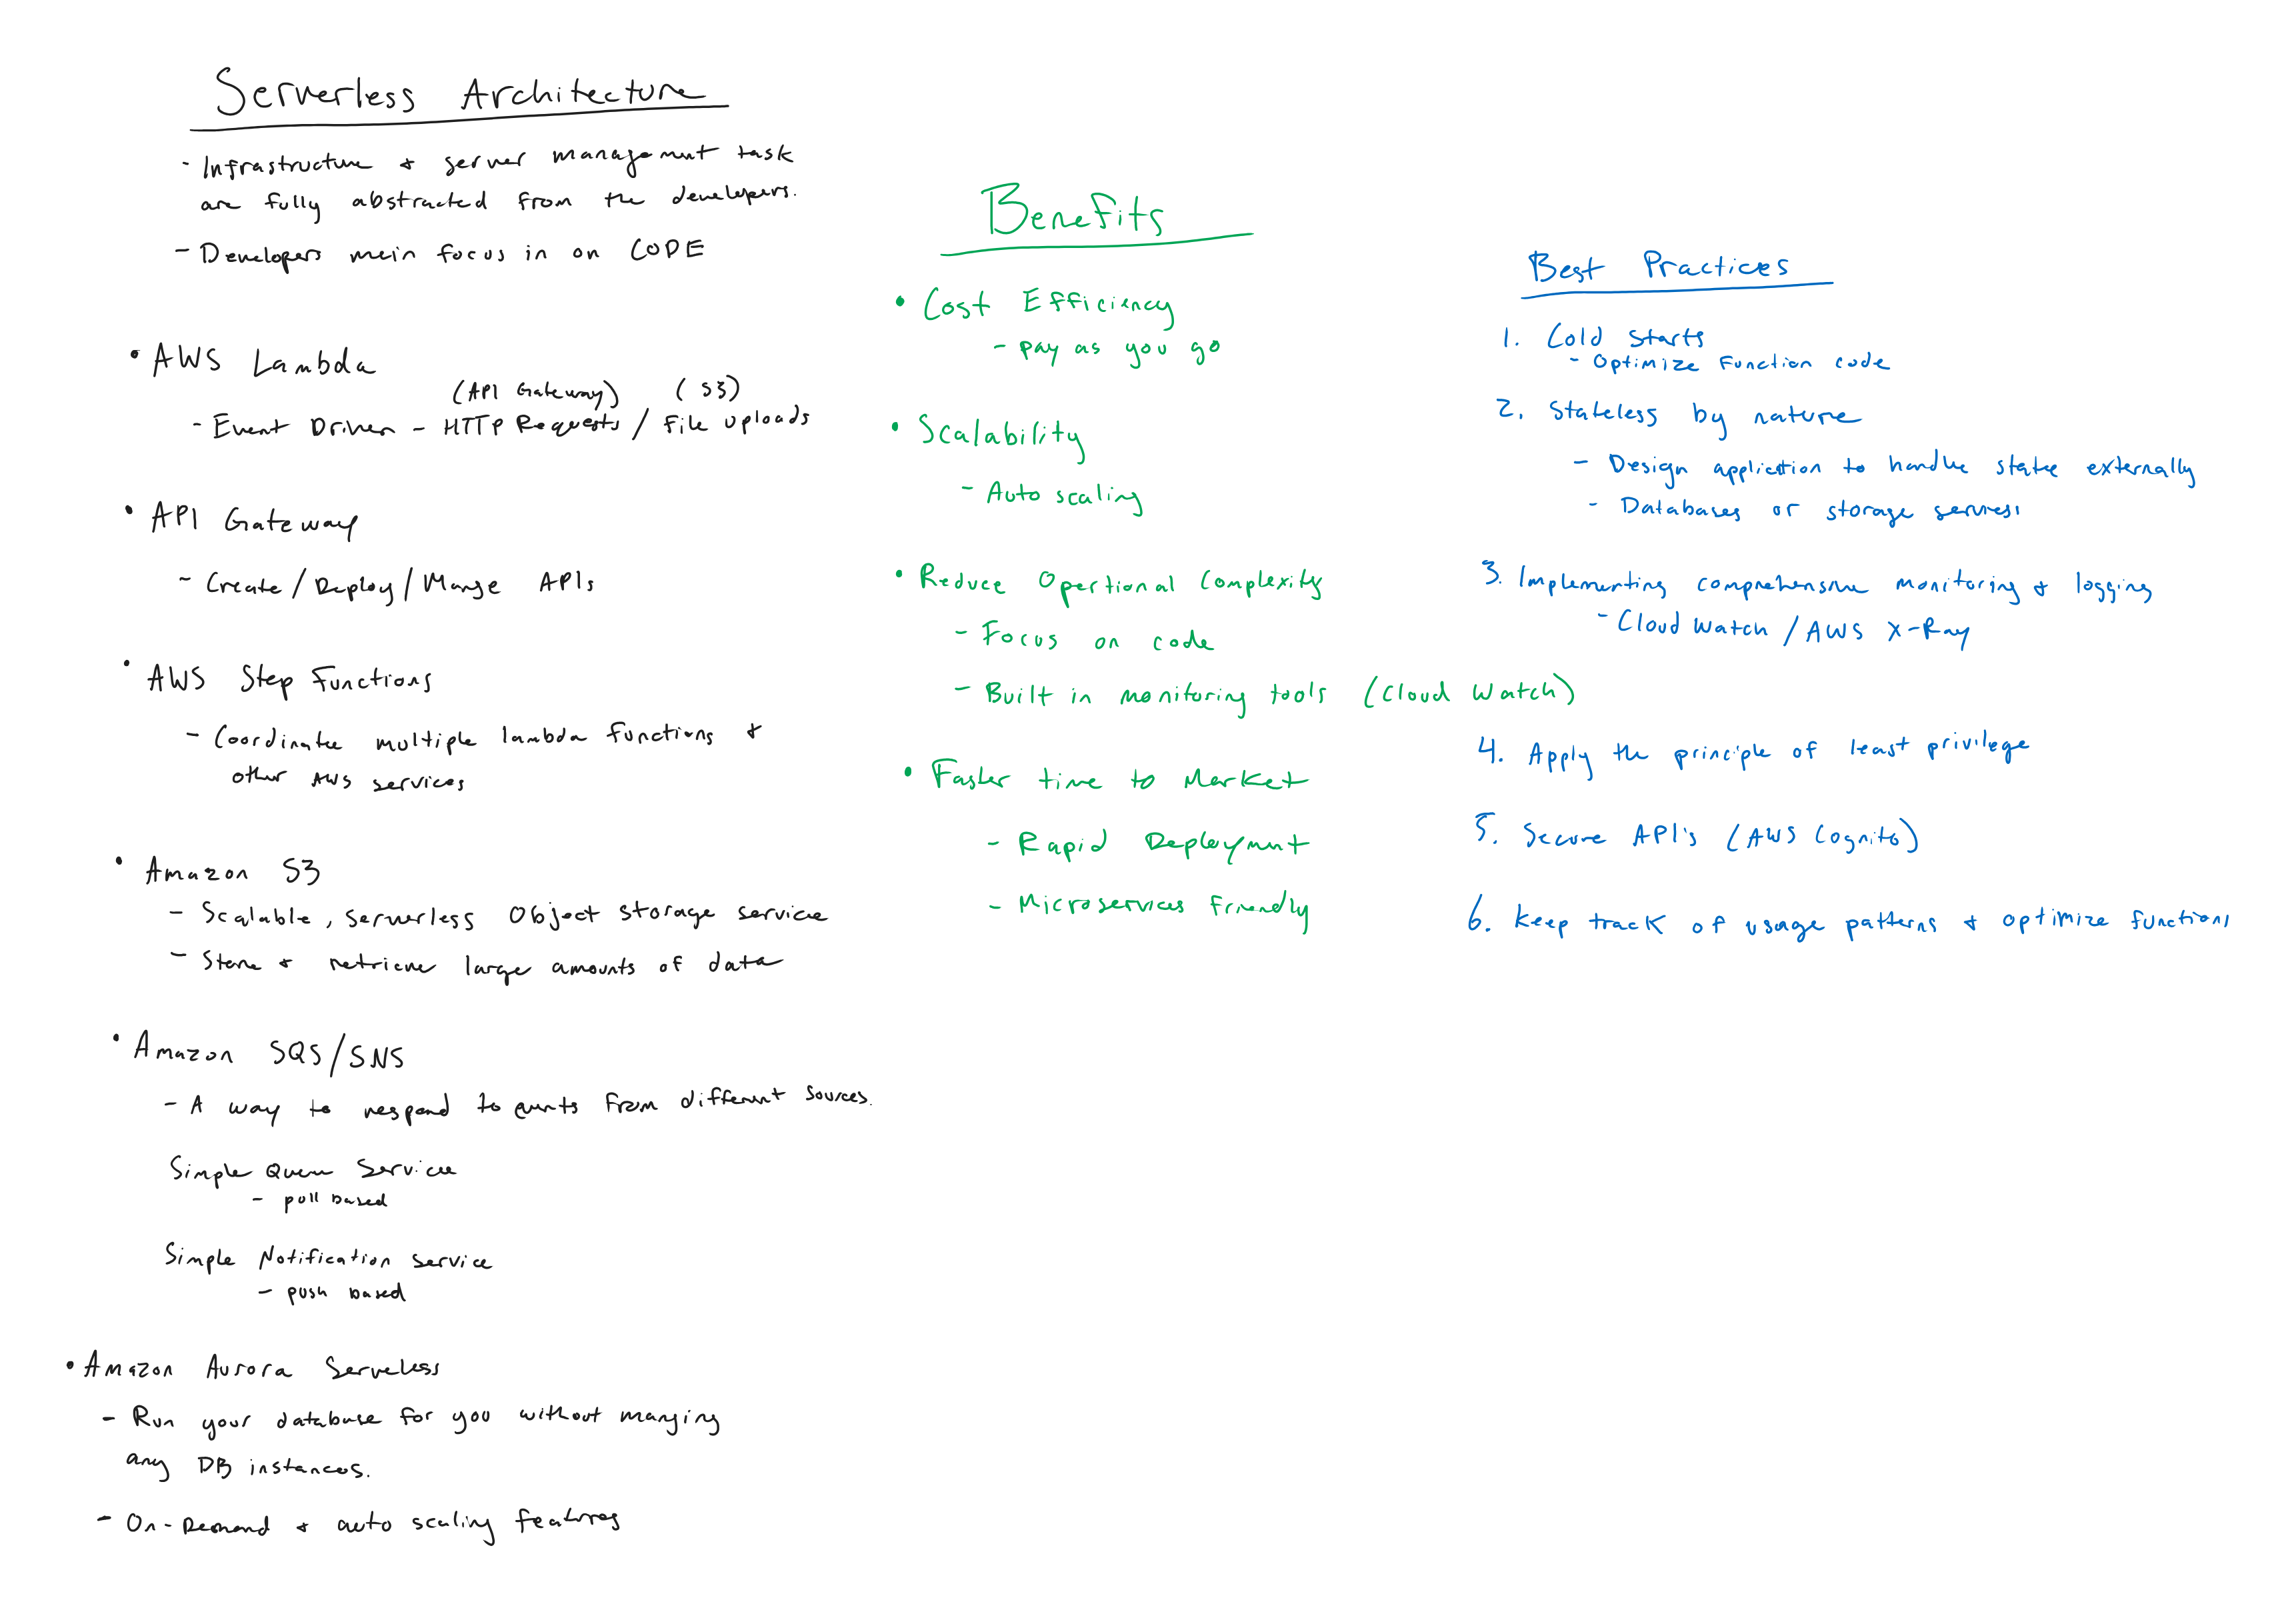 Serverless Architecture
- Infrastructure & server management task
are fully abstracted from the developers.
- Developers mein focus in on CODE
• AWS Lambda
(API Gateway) (S3)
- Event Driven - HTTP Requests / File uploads
• API Gateway
- Create/Deploy/Mange APIs
• AWS Step Functions
- Coordinate multiple lambda functions &
other AWS services
• Amazon S3
- Scalable, serverless Object storage service
- Store & retrieve large amounts of data
• Amazon SQS/SNS
- A way to respond to events from different sources.
Simple Queue Service
- poll based
Simple Notification Service
- push based
• Amazon Aurora Serveless
- Run your database for you without manging
any DB instances.
- On-Demand & auto scaling features
Benefits
• Cost Efficiency
- pay as you go
• Scalability
- Auto scaling
• Reduce Opertional Complexity
- Focus on code
- Built in monitoring tools (Cloud Watch)
• Faster time to Market
- Rapid Deployment
- Microservices Friendly
Best Practices
1. Cold Starts
- Optimize Function code
2. Stateless by nature
- Design application to handle state externally
- Databases or storage services
3. Implementing comprehensive monitoring & logging
- Cloud Watch / AWS X-Ray
4. Apply the principle of least privilege
5. Secure API's (AWS Cognito)
6. Keep track of usage patterns & optimize functions